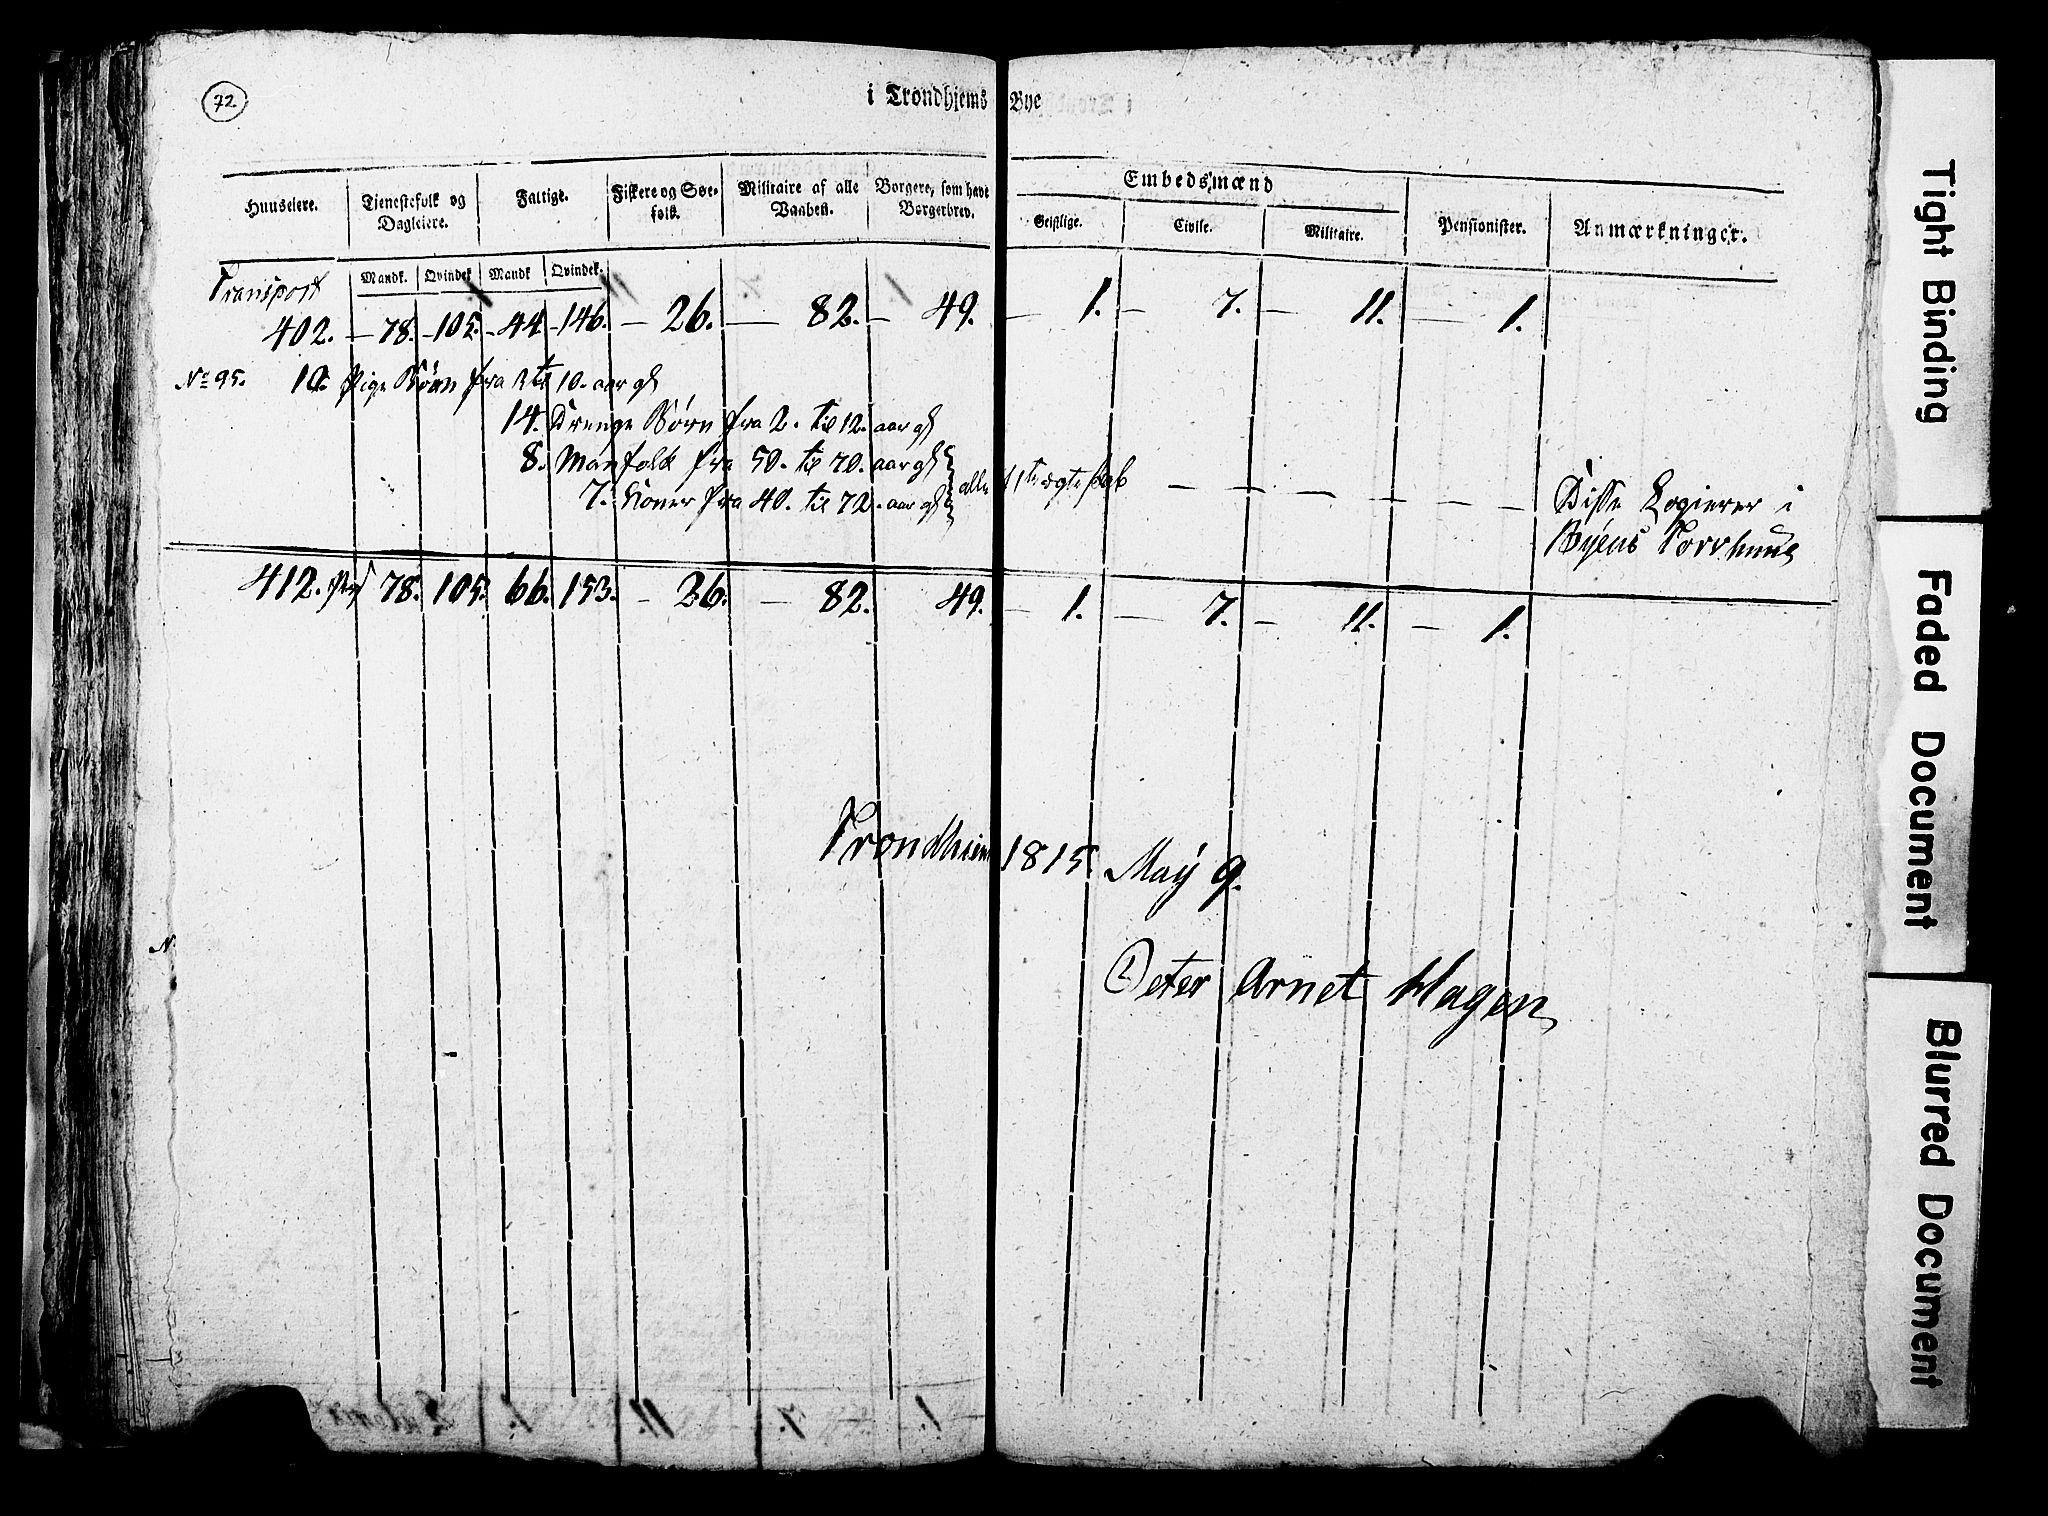 72
i Trondhjems Bye
Huuseiere. Tienestefolk og Dagleiere. Fattige. Fiskere og Søefolk. Militaire af alle Vaaben. Borgere, som have Borgerbrev. Embedsmænd Pensionister. Anmærkninger.
Geistlige. Civile. Militaire.
Mandk. Qvindek. Mandk. Qvindek.
Transport
402. – 78. – 105. – 44. – 146. – 26. – 82. – 49. – 1. – 7. – 11. – 1.
No 95. 10. Pige Børn fra 2 til 10. aar gl
14. Drenge Børn fra 2. til 12. aar gl
8. Manfolk fra 50. til 70. aar gl
7. Koner fra 40. til 72. aar gl } alle
Disse Logierer i
Byens Torvhuus
412. 78. 105. 66. 153. – 26. – 82. 49. – 1. – 7. – 11. – 1.
Trondhiem 1815 May 9.
Peter Arnet Hagen
Tight Binding
Faded Document
Blurred Document